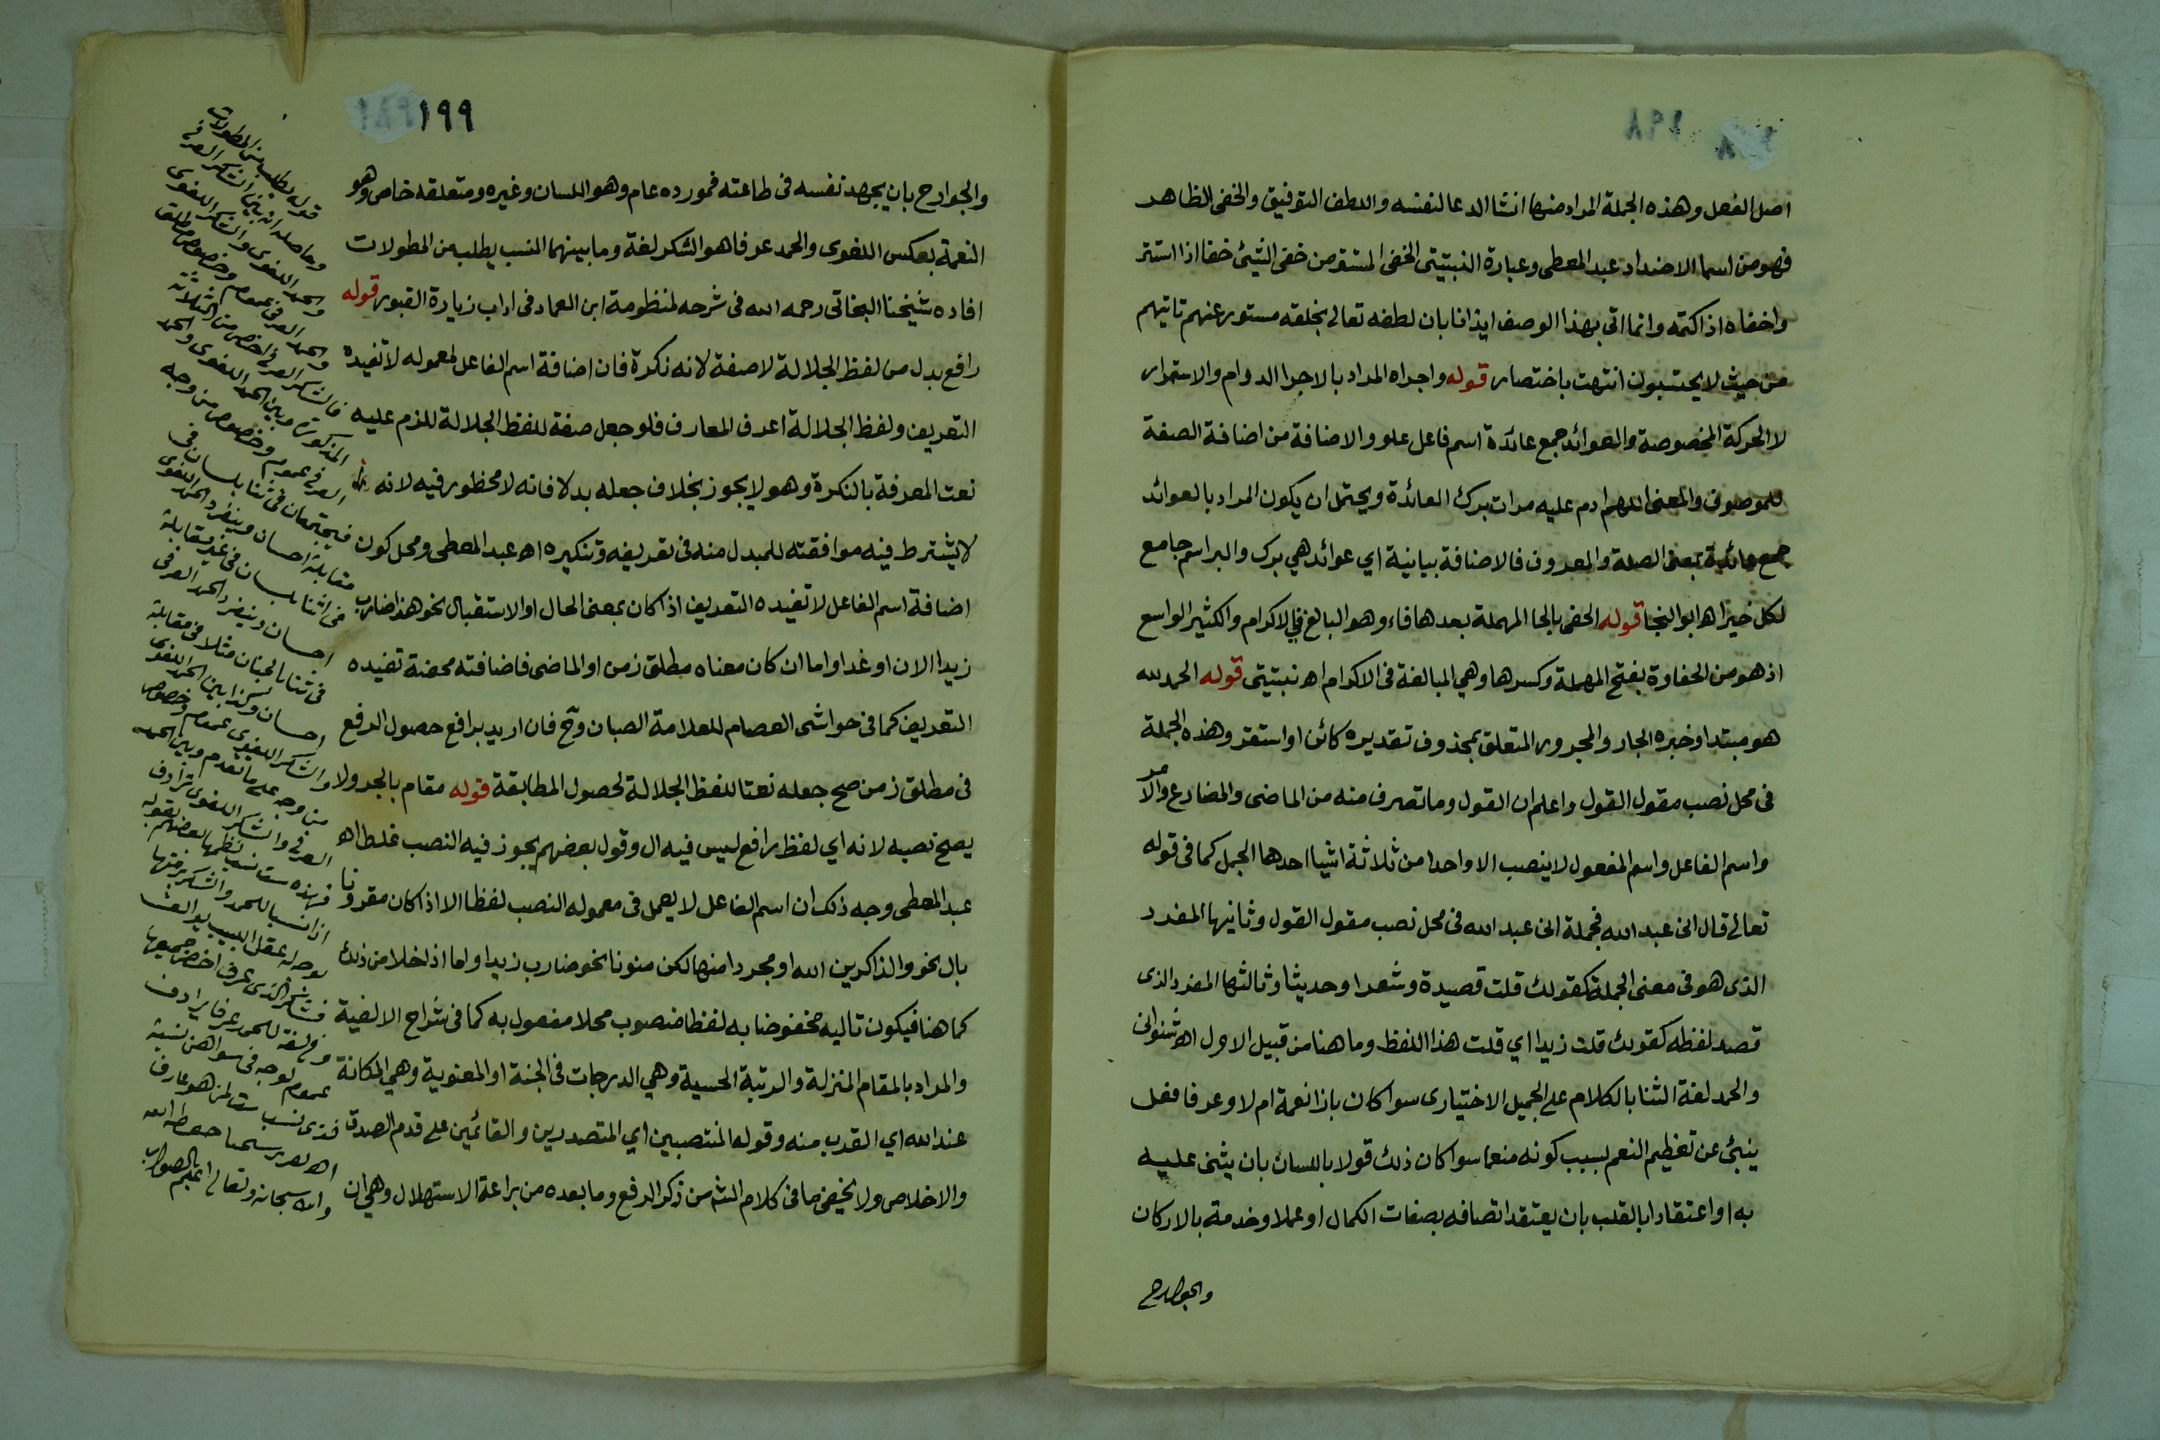 ١٩٨
اصل الفعل وهذه الجملة المراد منها انشا الدعا لنفسه واللطف التوفيق والخفى الظاهر
فهو من اسما الاضداد عبد المعطى وعبارة النبتيتى الخفى المشتق من خفى الشيئ خفا اذا استتر
واخفاه اذا كتمه وانما اتى بهذا الوصف ايذانا بان لطفه تعالى بخلقه مستور عنهم تاتيهم
من حيث لا يحتسبون انتهت باختصار قوله واجراه المراد بالاجرا الدوام والاستمرار
لا الحركة المخصوصة والعوائد جمع عائدة اسم فاعل علو والاضافة من اضافة الصفة
للموصوف والمعنى اللهم ادم عليه مرات برك العائدة ويحتمل ان يكون المراد بالعوائد
جمع عائدة بمعنى الصلة والمعروف فالاضافة بيانية اي عوائد هي برك والبر اسم جامع
لكل خير اهـ ابو النجا قوله الحفى بالحا المهملة بعدها فاء وهو البالغ في الاكرام والكثير الواسع
اذ هو من الحفاوة بفتح المهملة وكسرها وهي المبالغة فى الاكرام اهـ نبتيتى قوله الحمد لله
هو مبتدا وخبره الجار والمجرور المتعلق بمحذوف تقديره كائن او استقر وهذه الجملة
فى محل نصب مقول القول واعلم ان القول وما تصرف منه من الماضى والمضارع والامر
واسم الفاعل واسم المفعول لا ينصب الا واحدا من ثلاثة اشيا احدها الجمل كما فى قوله
تعالى قال انى عبد الله فجملة انى عبد الله فى محل نصب مقول القول وثانيها المفرد
الذى هو فى معنى الجملة كقولك قلت قصيدة وشعرا وحديثا وثالثها المفرد الذى
قصد لفظه كقولك قلت زيدا اي قلت هذا اللفظ وما هنا من قبيل الاول اهـ شنوانى
والحمد لغة الثنا بالكلام على الجميل الاختيارى سوا كان بازا نعمة ام لا وعرفا فعل
ينبئ عن تعظيم المنعم بسبب كونه منعما سوا كان ذلك قولا باللسان بان يثنى عليه
به او اعتقادا بالقلب بان يعتقد اتصافه بصفات الكمال او عملا وخدمة بالاركان
والجوارح
١٩٩
والجوارح بان يجهد نفسه فى طاعته فمورده عام وهو اللسان وغيره ومتعلقه خاص وهو
النعمة بعكس اللغوى والحمد عرفا هو الشكر لغة وما بينهما من النسب يطلب من المطولات
افاده شيخنا البخاتى رحمه الله فى شرحه لمنظومة ابن العماد فى اداب زيارة القبور قوله
رافع بدل من لفظ الجلالة لا صفة لانه نكرة فان اضافة اسم الفاعل لمعموله لا تفيده
التعريف ولفظ الجلالة اعرف المعارف فلو جعل صفة للفظ الجلالة للزم عليه
نعت المعرفة بالنكرة وهو لا يجوز بخلاف جعله بدلا فانه لا محظور فيه لانه
لا يشترط فيه موافقته للمبدل منه فى تعريفه وتنكيره اهـ عبد المعطى ومحل كون
اضافة اسم الفاعل لا تفيده التعريف اذا كان بمعنى الحال او الاستقبال نحو هذا ضارب
زيدا الان او غدا واما ان كان معناه مطلق زمن او الماضى فاضافته محضة تفيده
التعريف كما فى حواشى العصام للعلامة الصبان وح فان اريد برافع حصول الرفع
فى مطلق زمن صح جعله نعتا للفظ الجلالة لحصول المطابقة قوله مقام بالجر ولا
يصح نصبه لانه اي لفظ رافع ليس فيه ال وقول بعضهم يجوز فيه النصب غلط اهـ
عبد المعطى وجه ذلك ان اسم الفاعل لا يعمل فى معموله النصب لفظا الا اذا كان مقرونا
بال نحو والذاكرين الله او مجردا منها لكن منونا نحو ضارب زيدا واما اذا خلا من ذلك
كما هنا فيكون تاليه مخفوضا به لفظا منصوب محلا مفعول به كما فى شراح الالفية
والمراد بالمقام المنزلة والرتبة الحسية وهي الدرجات فى الجنة او المعنوية وهي المكانة
عند الله اي القرب منه وقوله المنتصبين اي المتصدرين والقائمين على قدم الصدق
والاخلاص ولا يخفى ما فى كلام الش من ذكر الرفع وما بعده من براعة الاستهلال وهي ان
قوله يطلب من المطولات
وحاصله ان بين الشكر العرفى
والحمد اللغوى والشكر اللغوى
والحمد العرفى عموم وخصوص مطلق
فالشكر العرفى اخص من الثلاثة
المذكورة وبين الحمد اللغوى والحمد
العرفى عموم وخصوص من وجه
فيجتمعان فى ثنا بلسان فى
مقابلة احسان وينفرد الحمد اللغوى
فى ثنا بلسان فى غير مقابلة
احسان وينفرد الحمد العرفى
فى ثنا بالجنان مثلا فى مقابلة
احسان وكذا بين الحمد اللغوى
والشكر اللغوى عموم وخصوص
من وجه على ما تقدم وبين الحمد
العرفى والشكر اللغوى ترادف
فهذه ست نسب نظمها بعضهم بقوله
اذا نسبا للحمد والشكر رمتها
بوجه له عقل اللبيب يؤالف
فشكر لذى عرف اخص جميعها
وفى لغة للحمد عرفا يرادف
عموم لوجه فى سواهن نسبة
فذى نسب ست لمن هو عارف
والله سبحانه وتعالى اعلم بالصواب